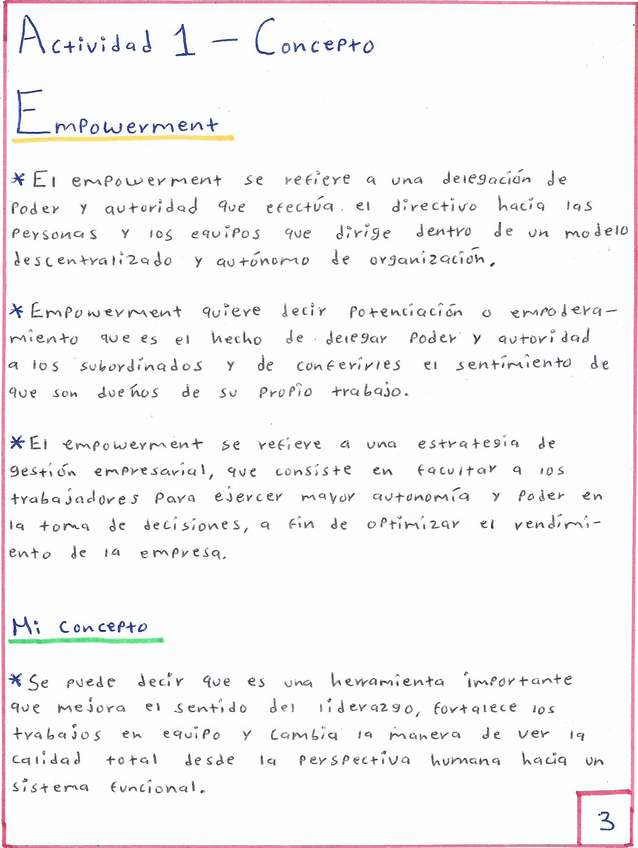 Actividad 1 – Concepto
Empowerment
* El empowerment se refiere a una delegación de
poder y autoridad que efectúa el directivo hacia las
personas y los equipos que dirige dentro de un modelo
descentralizado y autónomo de organización.
* Empowerment quiere decir potenciación o empodera-
miento que es el hecho de delegar poder y autoridad
a los subordinados y de conferirles el sentimiento de
que son dueños de su propio trabajo.
* El empowerment se refiere a una estrategia de
gestión empresarial, que consiste en facultar a los
trabajadores para ejercer mayor autonomía y poder en
la toma de decisiones, a fin de optimizar el rendimi-
ento de la empresa.
Mi concepto
* Se puede decir que es una herramienta importante
que mejora el sentido del liderazgo, fortalece los
trabajos en equipo y cambia la manera de ver la
calidad total desde la perspectiva humana hacia un
sistema funcional.
3